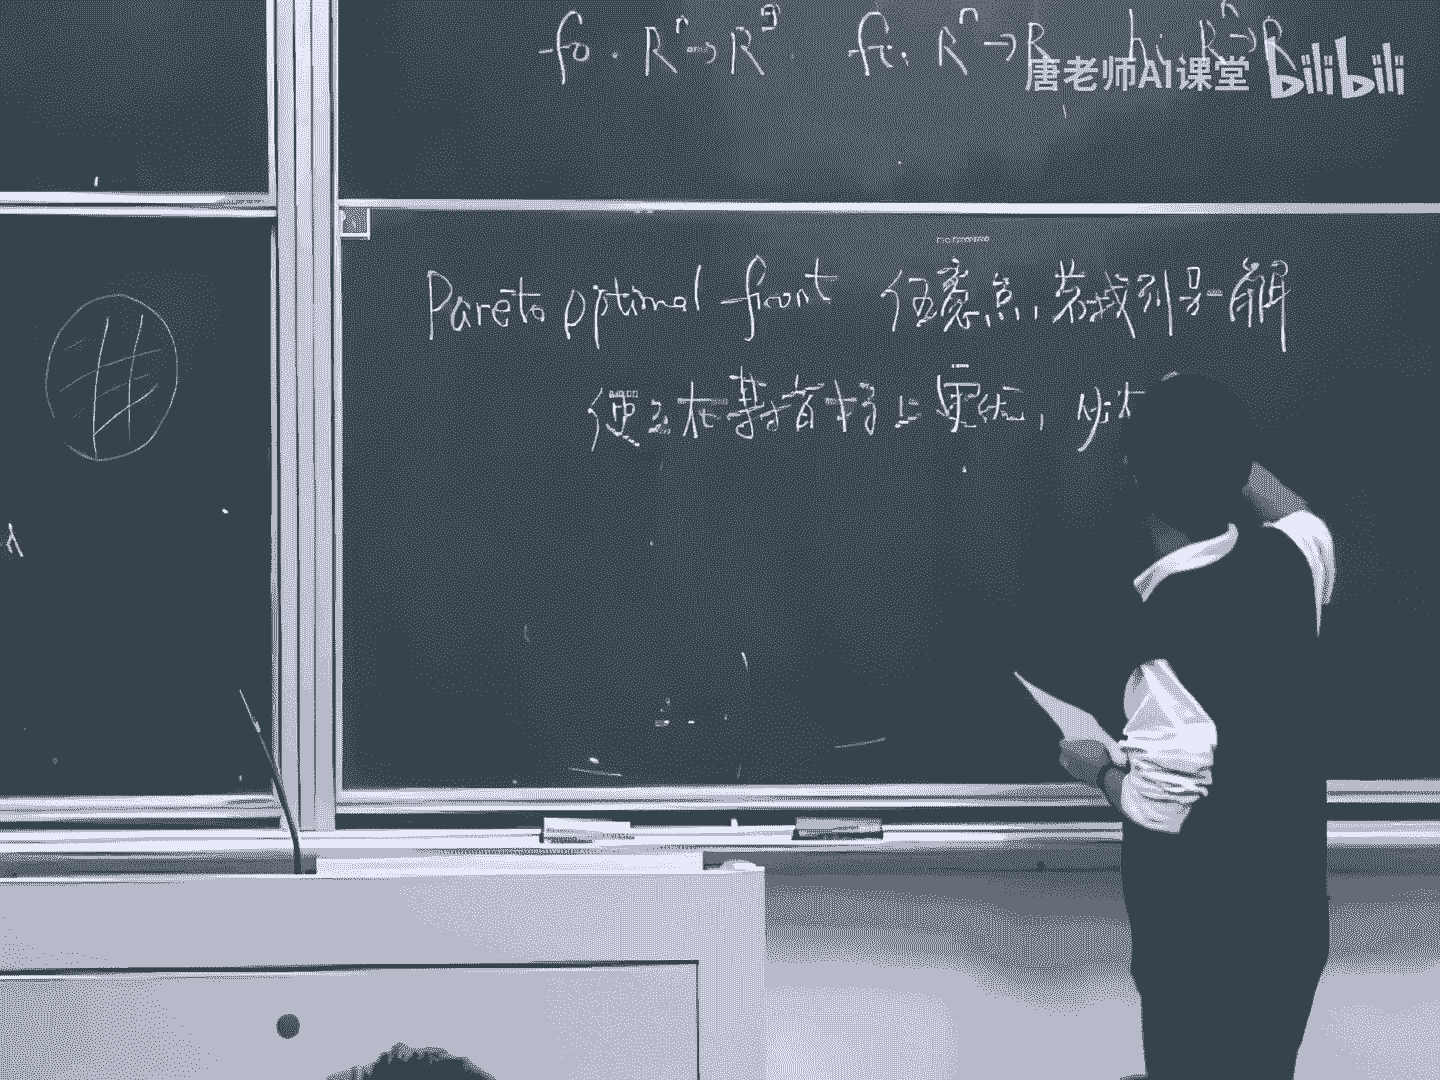 f₀: Rⁿ→R^q. fᵢ: Rⁿ→R hᵢ: Rⁿ→R
唐老师AI课堂 bilibili
Pareto optimal front 任意点,若找到另一解
使之在某指标上更优,必
λ